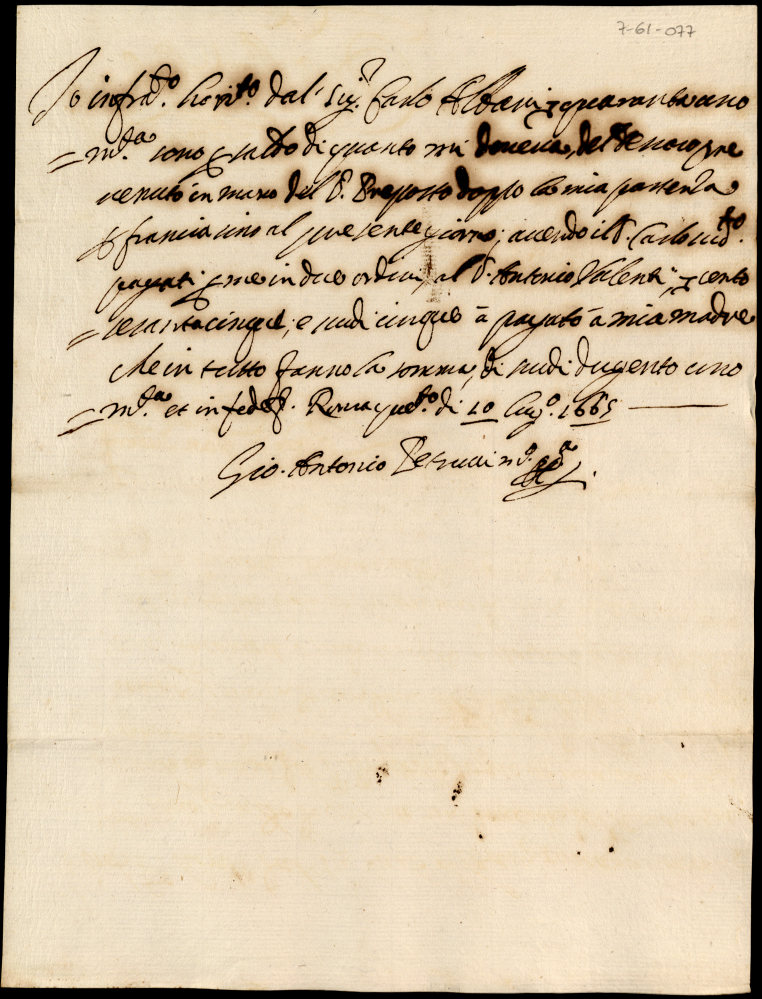 7-61-077
Io infras.to ho ric.to dal Sig.r Carlo Albani quarantauno
m.ta sono p saldo di quanto mi doveva, del
venuto in mano del S. Preposto doppo la mia partenza
p francia sino al presente giorno; avendo il S. Carlo sud.to
pagati p me in due ordini al S. Antonio Valenti, cento
sesantacinque, e scudi cinque à pagato à mia madre
che in tutto fanno la somma di scudi dugento uno
m.ta et in fede. Roma questo di 10 lug.o 1665
Gio. Antonio Petrucci m.o